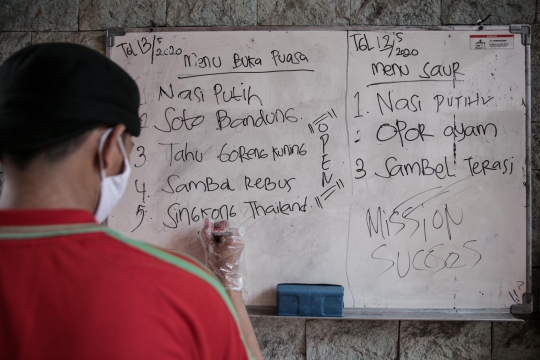 TGL 13/5 2020
Menu Buka Puasa
1. Nasi Putih
2 Soto Bandung.
3 Tahu Goreng Kuning
4. Sambal Rebus
5. Singkong Thailand.
OPEN
TGL 13/5 2020
Menu Saur
1. Nasi Putih
: Opor ayam
3 Sambel Terasi
MISSION
SUCCES